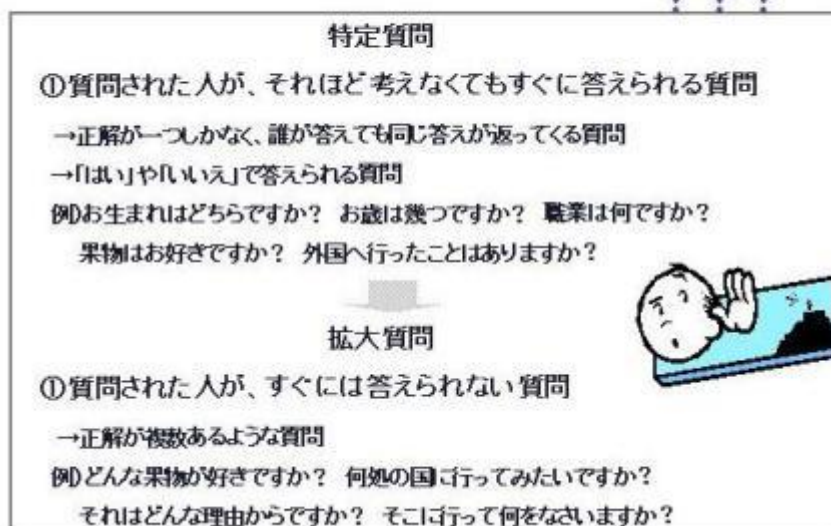 特定質問
①質問された人が、それほど考えなくてもすぐに答えられる質問
→正解が一つしかなく、誰が答えても同じ答えが返ってくる質問
→「はい」や「いいえ」で答えられる質問
例)お生まれはどちらですか? お歳は幾つですか? 職業は何ですか?
果物はお好きですか? 外国へ行ったことはありますか?
拡大質問
①質問された人が、すぐには答えられない質問
→正解が複数あるような質問
例)どんな果物が好きですか? 何処の国に行ってみたいですか?
それはどんな理由からですか? そこに行って何をなさいますか?